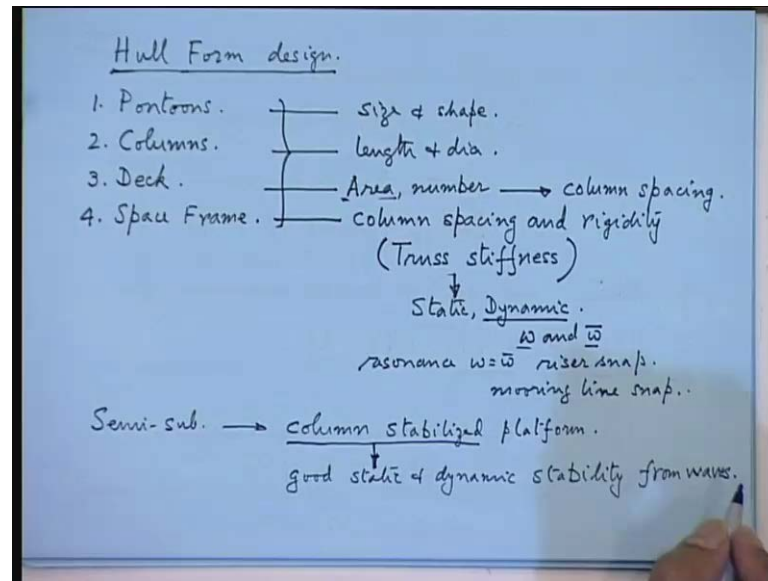 Hull Form design.
1. Pontoons. size & shape.
2. Columns. length & dia.
3. Deck. Area, number → column spacing.
4. Space Frame. column spacing and rigidity
(Truss stiffness)
Static, Dynamic.
ω and ω̅
resonance ω = ω̅ riser snap.
mooring line snap..
Semi-sub. → column stabilized platform.
good static & dynamic stability from waves.